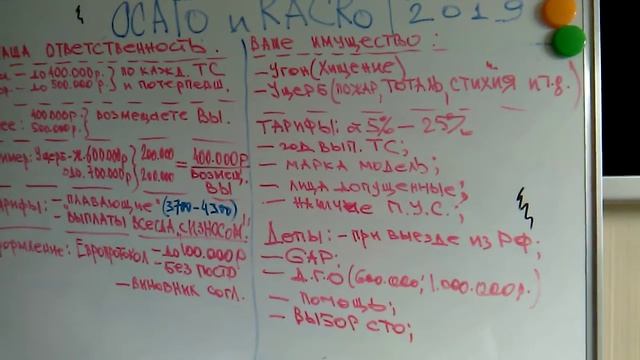 ОСАГО и КАСКО | 2019
ВАША ОТВЕТСТВЕННОСТЬ.
до 400.000р. } по кажд. ТС
до 500.000р. } и потерпевш.
400.000р.
500.000р. } возмещаете ВЫ.
Ущерб-Ж.600.000р } 200.000 = 400.000р
до.700.000р } 200.000 возмещ. ВЫ
Тарифы: - "плавающие" (3700-4300)
- выплаты всегда с износом.
Оформление: Европротокол - до 100.000р
- без постр
- виновник согл.
ВАШЕ ИМУЩЕСТВО:
- Угон (Хищение)
- Ущерб (пожар, тоталь, стихия и т.д.)
ТАРИФЫ: от 5% - 25%
- год вып. ТС;
- марка модель;
- лица допущенные;
- наличие П.У.С.;
Допы: - при выезде из РФ;
- GAP;
- Д.Г.О (600.000; 1.000.000р.)
- помощь;
- выбор СТО;